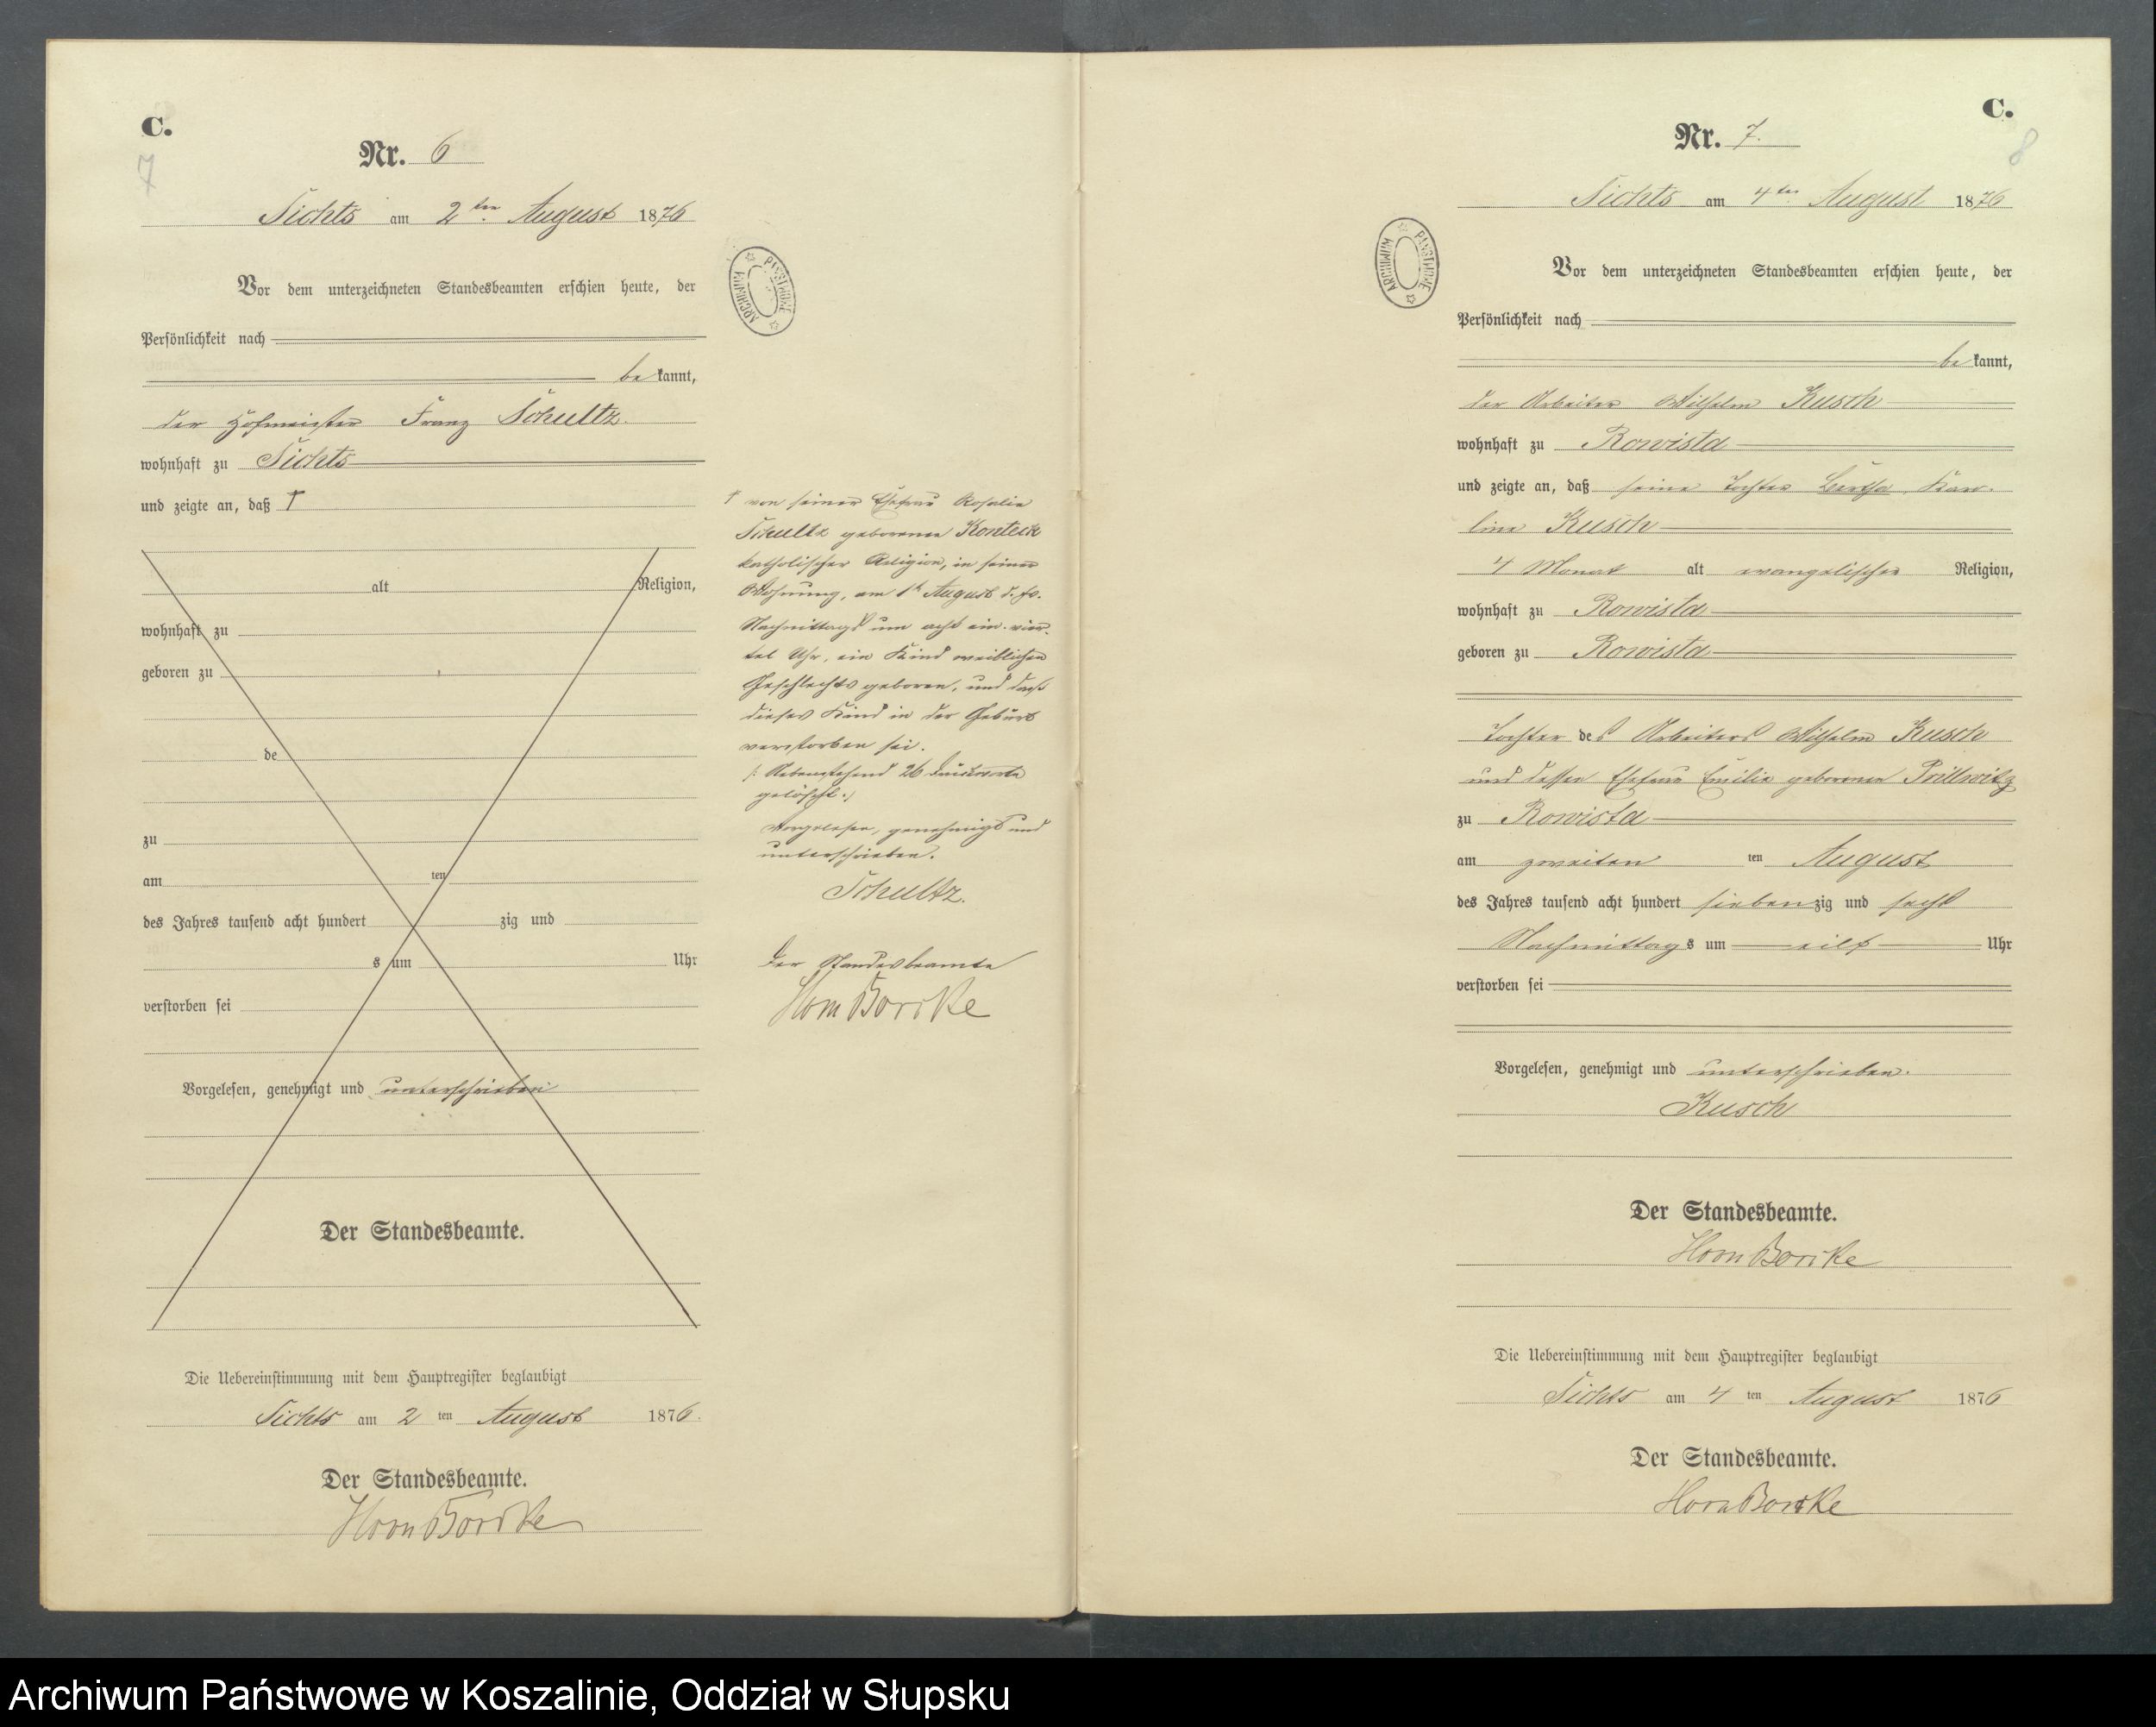 C.
7
Nr. 6
Sichts am 2ten August 1876
Vor dem unterzeichneten Standesbeamten erschien heute, der
Persönlichkeit nach
be kannt,
der Hofmeister Franz Schultz.
wohnhaft zu Sichts
und zeigte an, daß †
alt Religion,
wohnhaft zu
geboren zu
de
zu
am ten
des Jahres tausend acht hundert zig und
s um Uhr
verstorben sei
Vorgelesen, genehmigt und unterschrieben
Der Standesbeamte.
Die Uebereinstimmung mit dem Hauptregister beglaubigt
Sichts am 2 ten August 1876.
Der Standesbeamte.
ARCHIWUM PAŃSTWOWE
† von seiner Ehefrau Rosalie
Schultz geborenen Konteck
katholischer Religion, in seiner
Wohnung, am 1t August d. Js.
Nachmittags um acht ein vier-
tel Uhr, ein Kind weiblichen
Geschlechts geboren, und daß
dieses Kind in der Geburt
verstorben sei.
/: Nebenstehend 26 Druckworte
gelöscht :/
Vorgelesen, genehmigt und
unterschrieben.
Schultz.
Der Standesbeamte
C.
8
Nr. 7.
Sichts am 4ten August 1876
ARCHIWUM PAŃSTWOWE
Vor dem unterzeichneten Standesbeamten erschien heute, der
Persönlichkeit nach
be kannt,
der Arbeiter Wilhelm Kusch
wohnhaft zu Rowista
und zeigte an, daß seine Tochter Bertha Karo-
line Kusch
4 Monat alt evangelischer Religion,
wohnhaft zu Rowista
geboren zu Rowista
Tochter des Arbeiters Wilhelm Kusch
und dessen Ehefrau Emilie geborenen Prillwitz
zu Rowista
am zweiten ten August
des Jahres tausend acht hundert siebenzig und sechs
Nachmittags um eilf Uhr
verstorben sei
Vorgelesen, genehmigt und unterschrieben.
Kusch
Der Standesbeamte.
Die Uebereinstimmung mit dem Hauptregister beglaubigt
Sichts am 4 ten August 1876
Der Standesbeamte.
Archiwum Państwowe w Koszalinie, Oddział w Słupsku